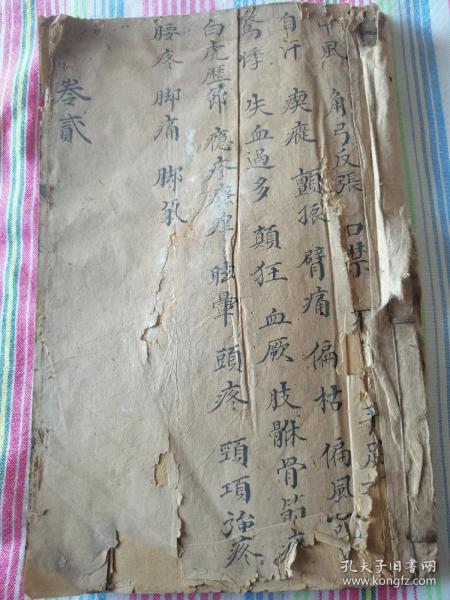 中風 角弓反張 口禁 不 手足
自汗 瘈瘲 顫振 臂痛 偏枯 偏風
驚悸 失血過多 顛狂 血厥 肢骵骨節疼
白虎歷節 癮疹 眩暈 頭疼 頸項強疼
腰疼 脚痛 脚氣
卷貳
孔夫子旧书网
www.kongfz.com